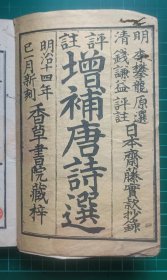 明 李攀龍原選
清 錢謙益評註
日本齋藤實頴抄錄
評註
增補唐詩選
明治十四年
巳一月新刻
香草書院藏梓